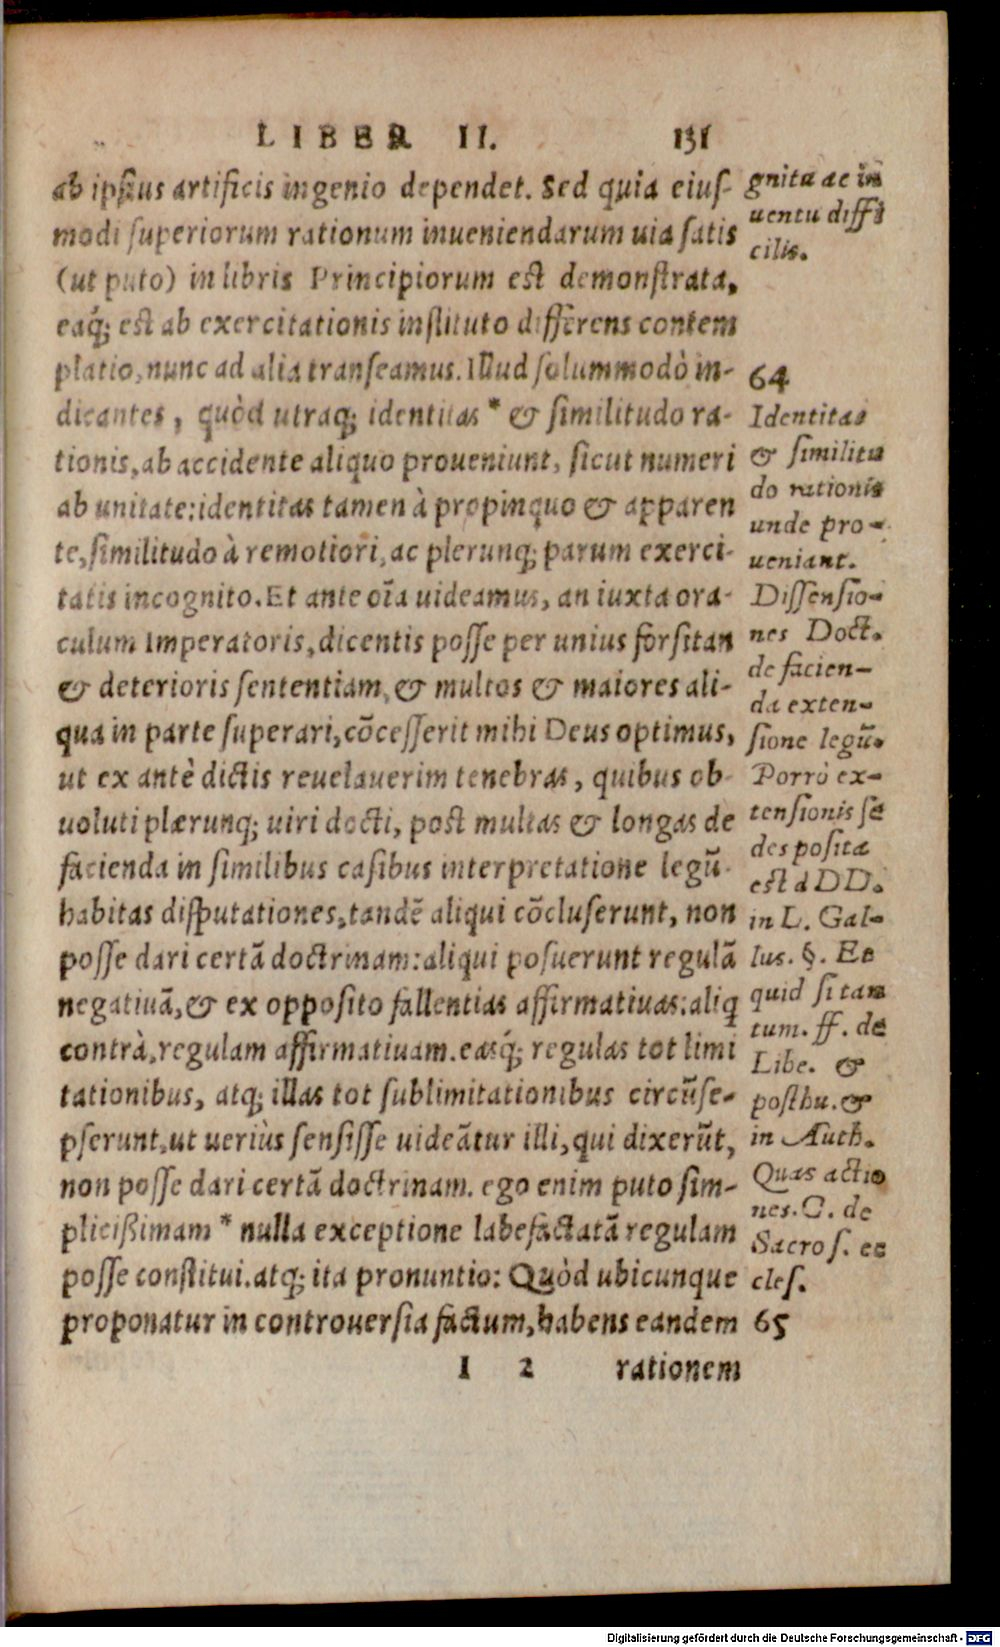 LIBER II. 131
ab ipsius artificis ingenio dependet. Sed quia eius-
modi superiorum rationum inueniendarum uia satis
(ut puto) in libris Principiorum est demonstrata,
eaq́; est ab exercitationis instituto differens contem
platio, nunc ad alia transeamus. Illud solummodò in-
dicantes, quòd utraq; identitas * & similitudo ra-
tionis, ab accidente aliquo proueniunt, sicut numeri
ab unitate: identitas tamen à propinquo & apparen
te, similitudo à remotiori, ac plerunq; parum exerci-
tatis incognito. Et ante oĩa uideamus, an iuxta ora-
culum Imperatoris, dicentis posse per unius forsitan
& deterioris sententiam, & multos & maiores ali-
qua in parte superari, cõcesserit mihi Deus optimus,
ut ex antè dictis reuelauerim tenebras, quibus ob-
uoluti plærunq; uiri docti, post multas & longas de
facienda in similibus casibus interpretatione legũ
habitas disputationes, tandẽ aliqui cõcluserunt, non
posse dari certã doctrinam: aliqui posuerunt regulã
negatiuã, & ex opposito fallentias affirmatiuas: aliq̃
contrà, regulam affirmatiuam. easq́; regulas tot limi
tationibus, atq; illas tot sublimitationibus circũse-
pserunt, ut ueriùs sensisse uideãtur illi, qui dixerũt,
non posse dari certã doctrinam. ego enim puto sim-
plicißimam * nulla exceptione labefactatã regulam
posse constitui. atq; ita pronuntio: Quòd ubicunque
proponatur in controuersia factum, habens eandem
I 2 rationem
gnitu ac in
uentu diffi
cilis.
64
Identitas
& similitu
do rationis
unde pro-
ueniant.
Dissensio-
nes Doct.
de facien-
da exten-
sione legũ.
Porrò ex-
tensionis se
des posita
est à DD.
in L. Gal-
lus. §. Et
quid si tan
tum. ff. de
Libe. &
posthu. &
in Auth.
Quas actio
nes. C. de
Sacros. ec
cles.
65
Digitalisierung gefördert durch die Deutsche Forschungsgemeinschaft - DFG